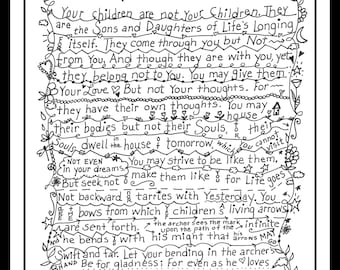 Your Children are not Your Children. They
are the Sons and Daughters of Life's Longing
Itself. They come through you but Not
from You, And though they are with you, yet
they belong not to You. You may give them
Your Love But not Your thoughts. For
they have their own thoughts. You may house
their bodies but not their Souls, for their
Souls dwell in the house of tomorrow, which You cannot visit
NOT EVEN in your dreams. You may strive to be like them,
But seek not to make them like You for Life goes
Not backward nor tarries with Yesterday. You
are bows from which your children as living arrows
are sent forth. the archer sees the mark upon the path of the infinite
he bends you with his might that his arrows may go
Swift and far. Let your bending in the archer's
HAND Be for gladness: For even as he loves